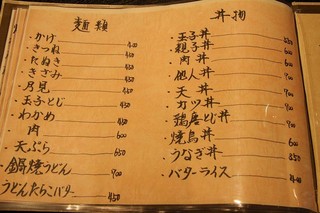 麺類
・かけ 400
・きつね 450
・たぬき 450
・きざみ 450
・月見 450
・玉子とじ 450
・わかめ 450
・肉 600
・天ぷら 650
・鍋焼うどん 900
うどんたらこバター 450
丼物
・玉子丼
・親子丼 600
・肉丼 600
・他人丼 700
・天丼 700
・カツ丼 700
・鶏唐とじ丼 700
・焼鳥丼 600
・うなぎ丼 850
・バターライス